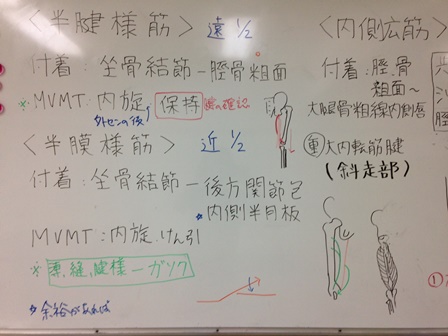 <半腱様筋> 遠 1/2
付着:坐骨結節−脛骨粗面
※MVMT:内旋 保持 腱の確認
外センの後
<半膜様筋> 近 1/2
付着:坐骨結節−後方関節包
内側半月板
MVMT:内旋.けん引
※薄,縫,腱様−ガソク
余裕があれば
<内側広筋>
付着:脛骨
粗面〜
大腿骨粗線内側唇
大内転筋腱
(斜走部)
①